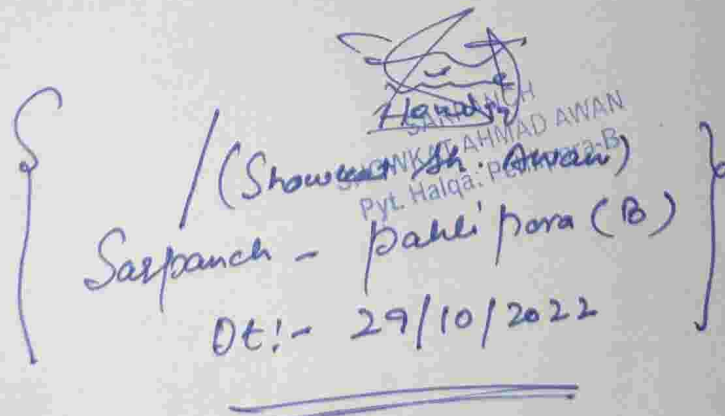 SARPANCH
SHOWKAT AHMAD AWAN
Pyt. Halqa: -B
(Showkat Ah. Awan)
Sarpanch - Pahlipora (B)
Dt:- 29/10/2022